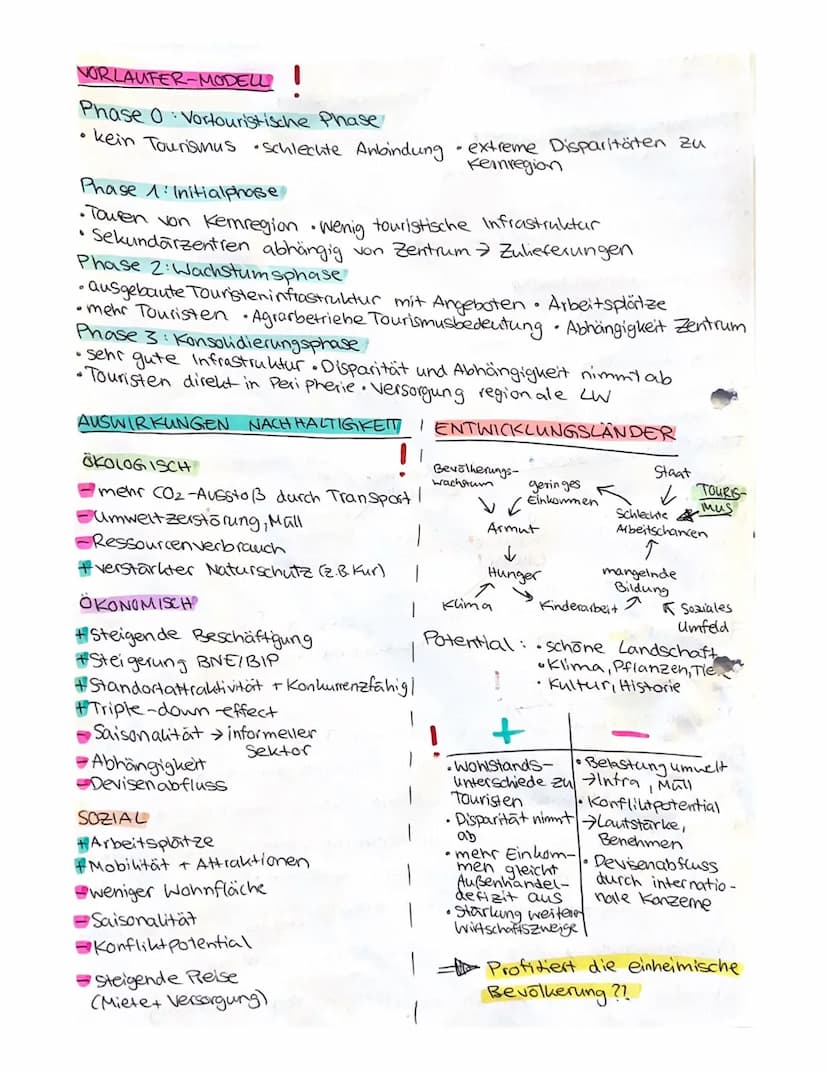 VORLAUFER-MODELL !
Phase 0: Vortouristische Phase
• kein Tourismus • schlechte Anbindung • extreme Disparitäten zu
Kernregion
Phase 1: Initialphase
• Touren von Kernregion • wenig touristische Infrastruktur
• Sekundärzentren abhängig von Zentrum → Zulieferungen
Phase 2: Wachstumsphase
• ausgebaute Touristeninfrastruktur mit Angeboten • Arbeitsplätze
• mehr Touristen • Agrarbetriebe Tourismusbedeutung • Abhängigkeit Zentrum
Phase 3: Konsolidierungsphase
• sehr gute Infrastruktur • Disparität und Abhängigkeit nimmt ab
• Touristen direkt in Peripherie • Versorgung regionale LW
AUSWIRKUNGEN NACHHALTIGKEIT
!
ÖKOLOGISCH
- mehr CO2-Ausstoß durch Transport
- Umweltzerstörung, Müll
- Ressourcenverbrauch
+ verstärkter Naturschutz (z.B. Kur)
ÖKONOMISCH
+ Steigende Beschäftigung
+ Steigerung BNE/BIP
+ Standortattraktivität + Konkurrenzfähig
+ Triple-down-effect
- Saisonalität → informeller
Sektor
- Abhängigkeit
- Devisenabfluss
SOZIAL
+ Arbeitsplätze
+ Mobilität + Attraktionen
- weniger Wohnfläche
- Saisonalität
- Konfliktpotential
- steigende Preise
(Miete + Versorgung)
ENTWICKLUNGSLÄNDER
Bevölkerungs-
wachstum
geringes
Einkommen
Staat
TOURIS-
MUS
Schlechte
Arbeitschancen
Armut
Hunger
mangelnde
Bildung
Klima
Kinderarbeit
Soziales
Umfeld
Potential: • schöne Landschaft
• Klima, Pflanzen,
• Kultur, Historie
! + -
• Wohlstands-
unterschiede zu
Touristen
• Disparität nimmt
ab
• mehr Einkom-
men gleicht
Außenhandel-
defizit aus
• Stärkung weiterer
Wirtschaftszweige
• Belastung Umwelt
→ Infra, Müll
• Konfliktpotential
→ Lautstärke,
Benehmen
• Devisenabfluss
durch internatio-
nale Konzerne
⇒ Profitiert die einheimische
Bevölkerung?!